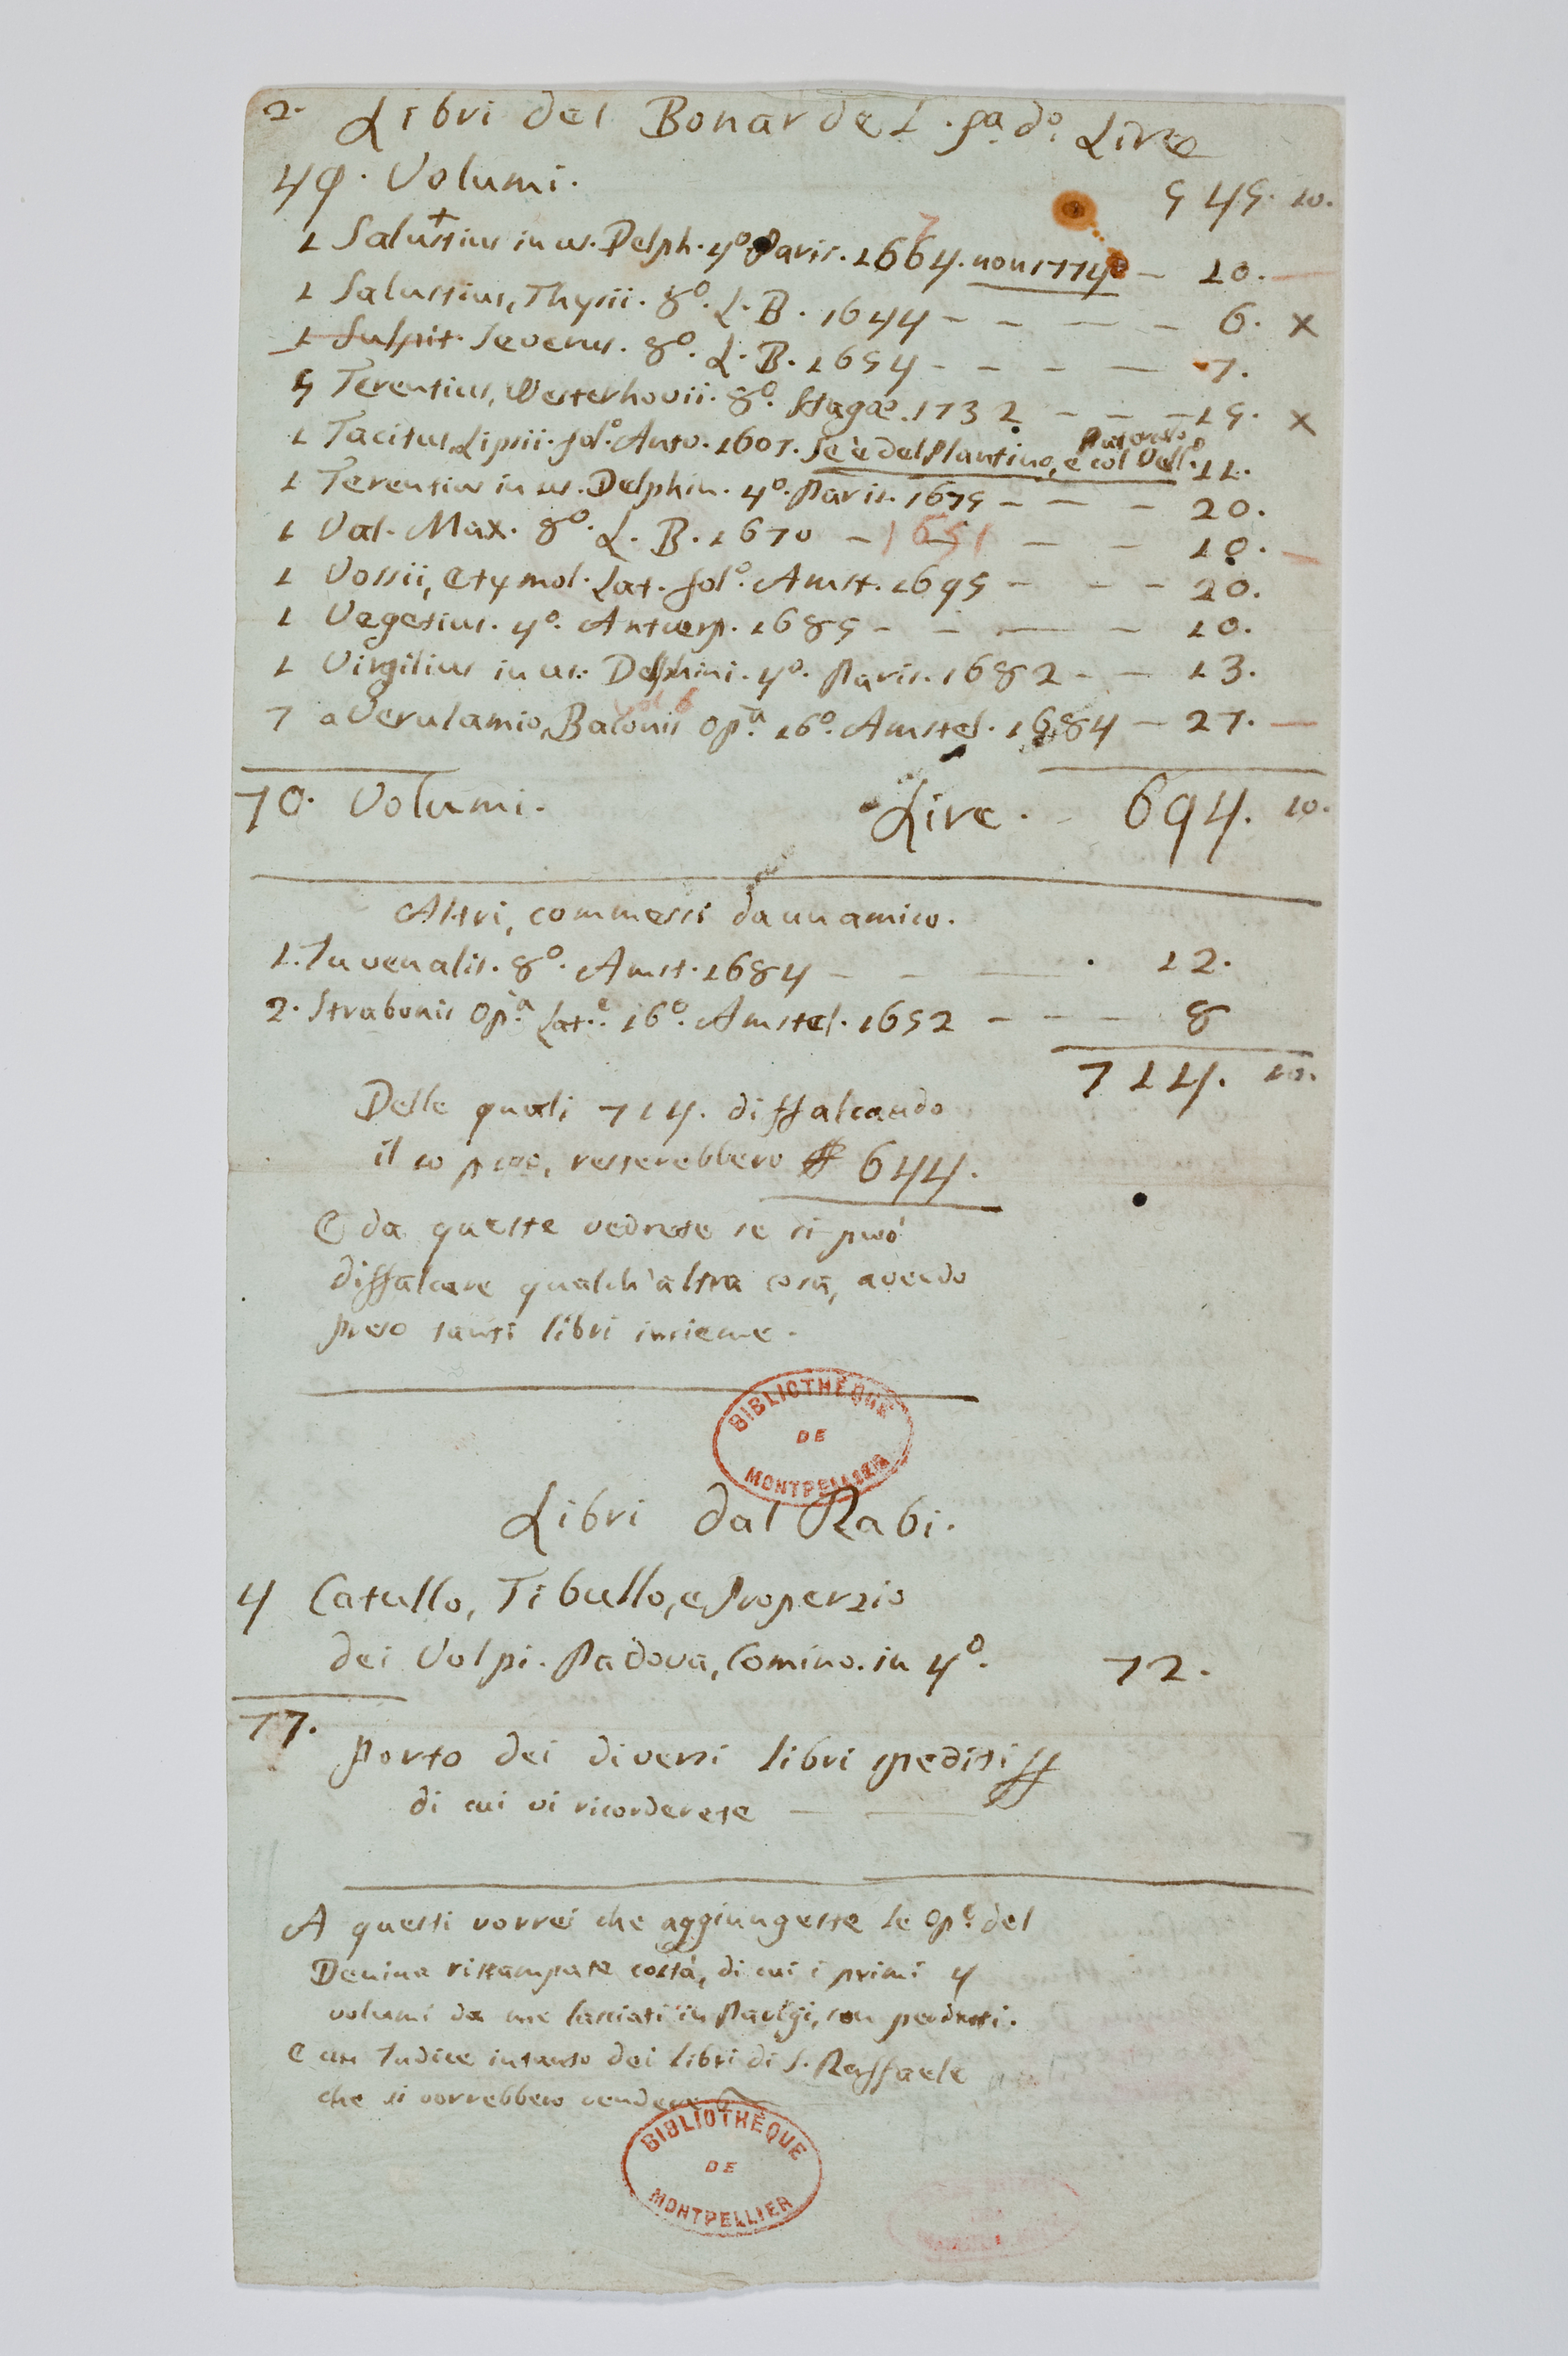 2. Libri del Bonardel. Lire
49. Volumi. 545. 10.
1 Salustius in us. Delph. 4º. Paris. 1664. non 1774 — 10. —
1 Salustius, Thysii. 8º. L. B. 1644 - - - - 6. x
1 Sulpit. Severus. 8º. L. B. 1654 - - - - 7.
5 Terentius, Westerhovii. 8º. Hagæ. 1732 - - - 15. x
1 Tacitus, Lipsii. folº. Antu. 1607. Se è del Plantino, e col Vellº. Patercolo 11.
1 Terentius in us. Delphin. 4º. Paris. 1675 - - - 20.
1 Val. Max. 8º. L. B. 1670 - 1651 - - 10. —
1 Vossii, Etymol. Lat. folº. Amst. 1695 - - - 20.
1 Vegetius. 4º. Antuerp. 1685 - - - - 10.
1 Virgilius in us: Delphini. 4º. Paris. 1682 - - 13.
vol 6
7 a Verulamio, Baconis Opª. 16º. Amstel. 1684 - 27. —
70. Volumi. Lire. 694. 10.
Altri, commessi da un amico.
1. Juvenalis. 8º. Amst. 1684 - - - 12.
2. Strabonis Opª. Lat.e 16º. Amstel. 1652 - - - 8
714. 10.
Delle quali 714. diffalcando
il 10 p, resterebbero 644.
E da queste vedrete se si può
diffalcare qualch'altra cosa, avendo
preso tanti libri insieme.
BIBLIOTHÈQUE
DE
MONTPELLIER
Libri dal Rabi.
4 Catullo, Tibullo, e Properzio
dei Volpi. Padova, Comino. in 4º. 72.
77.
Porto dei diversi libri spediti
di cui vi ricorderete - —
A questi vorrei che aggiungeste le Ope del
Denina ristampate costà, di cui i primi 4
volumi da me lasciati in Parigi, son perduti.
E un Indice intanto dei libri di S. Raffaele
che si vorrebbero vendere
BIBLIOTHÈQUE
DE
MONTPELLIER